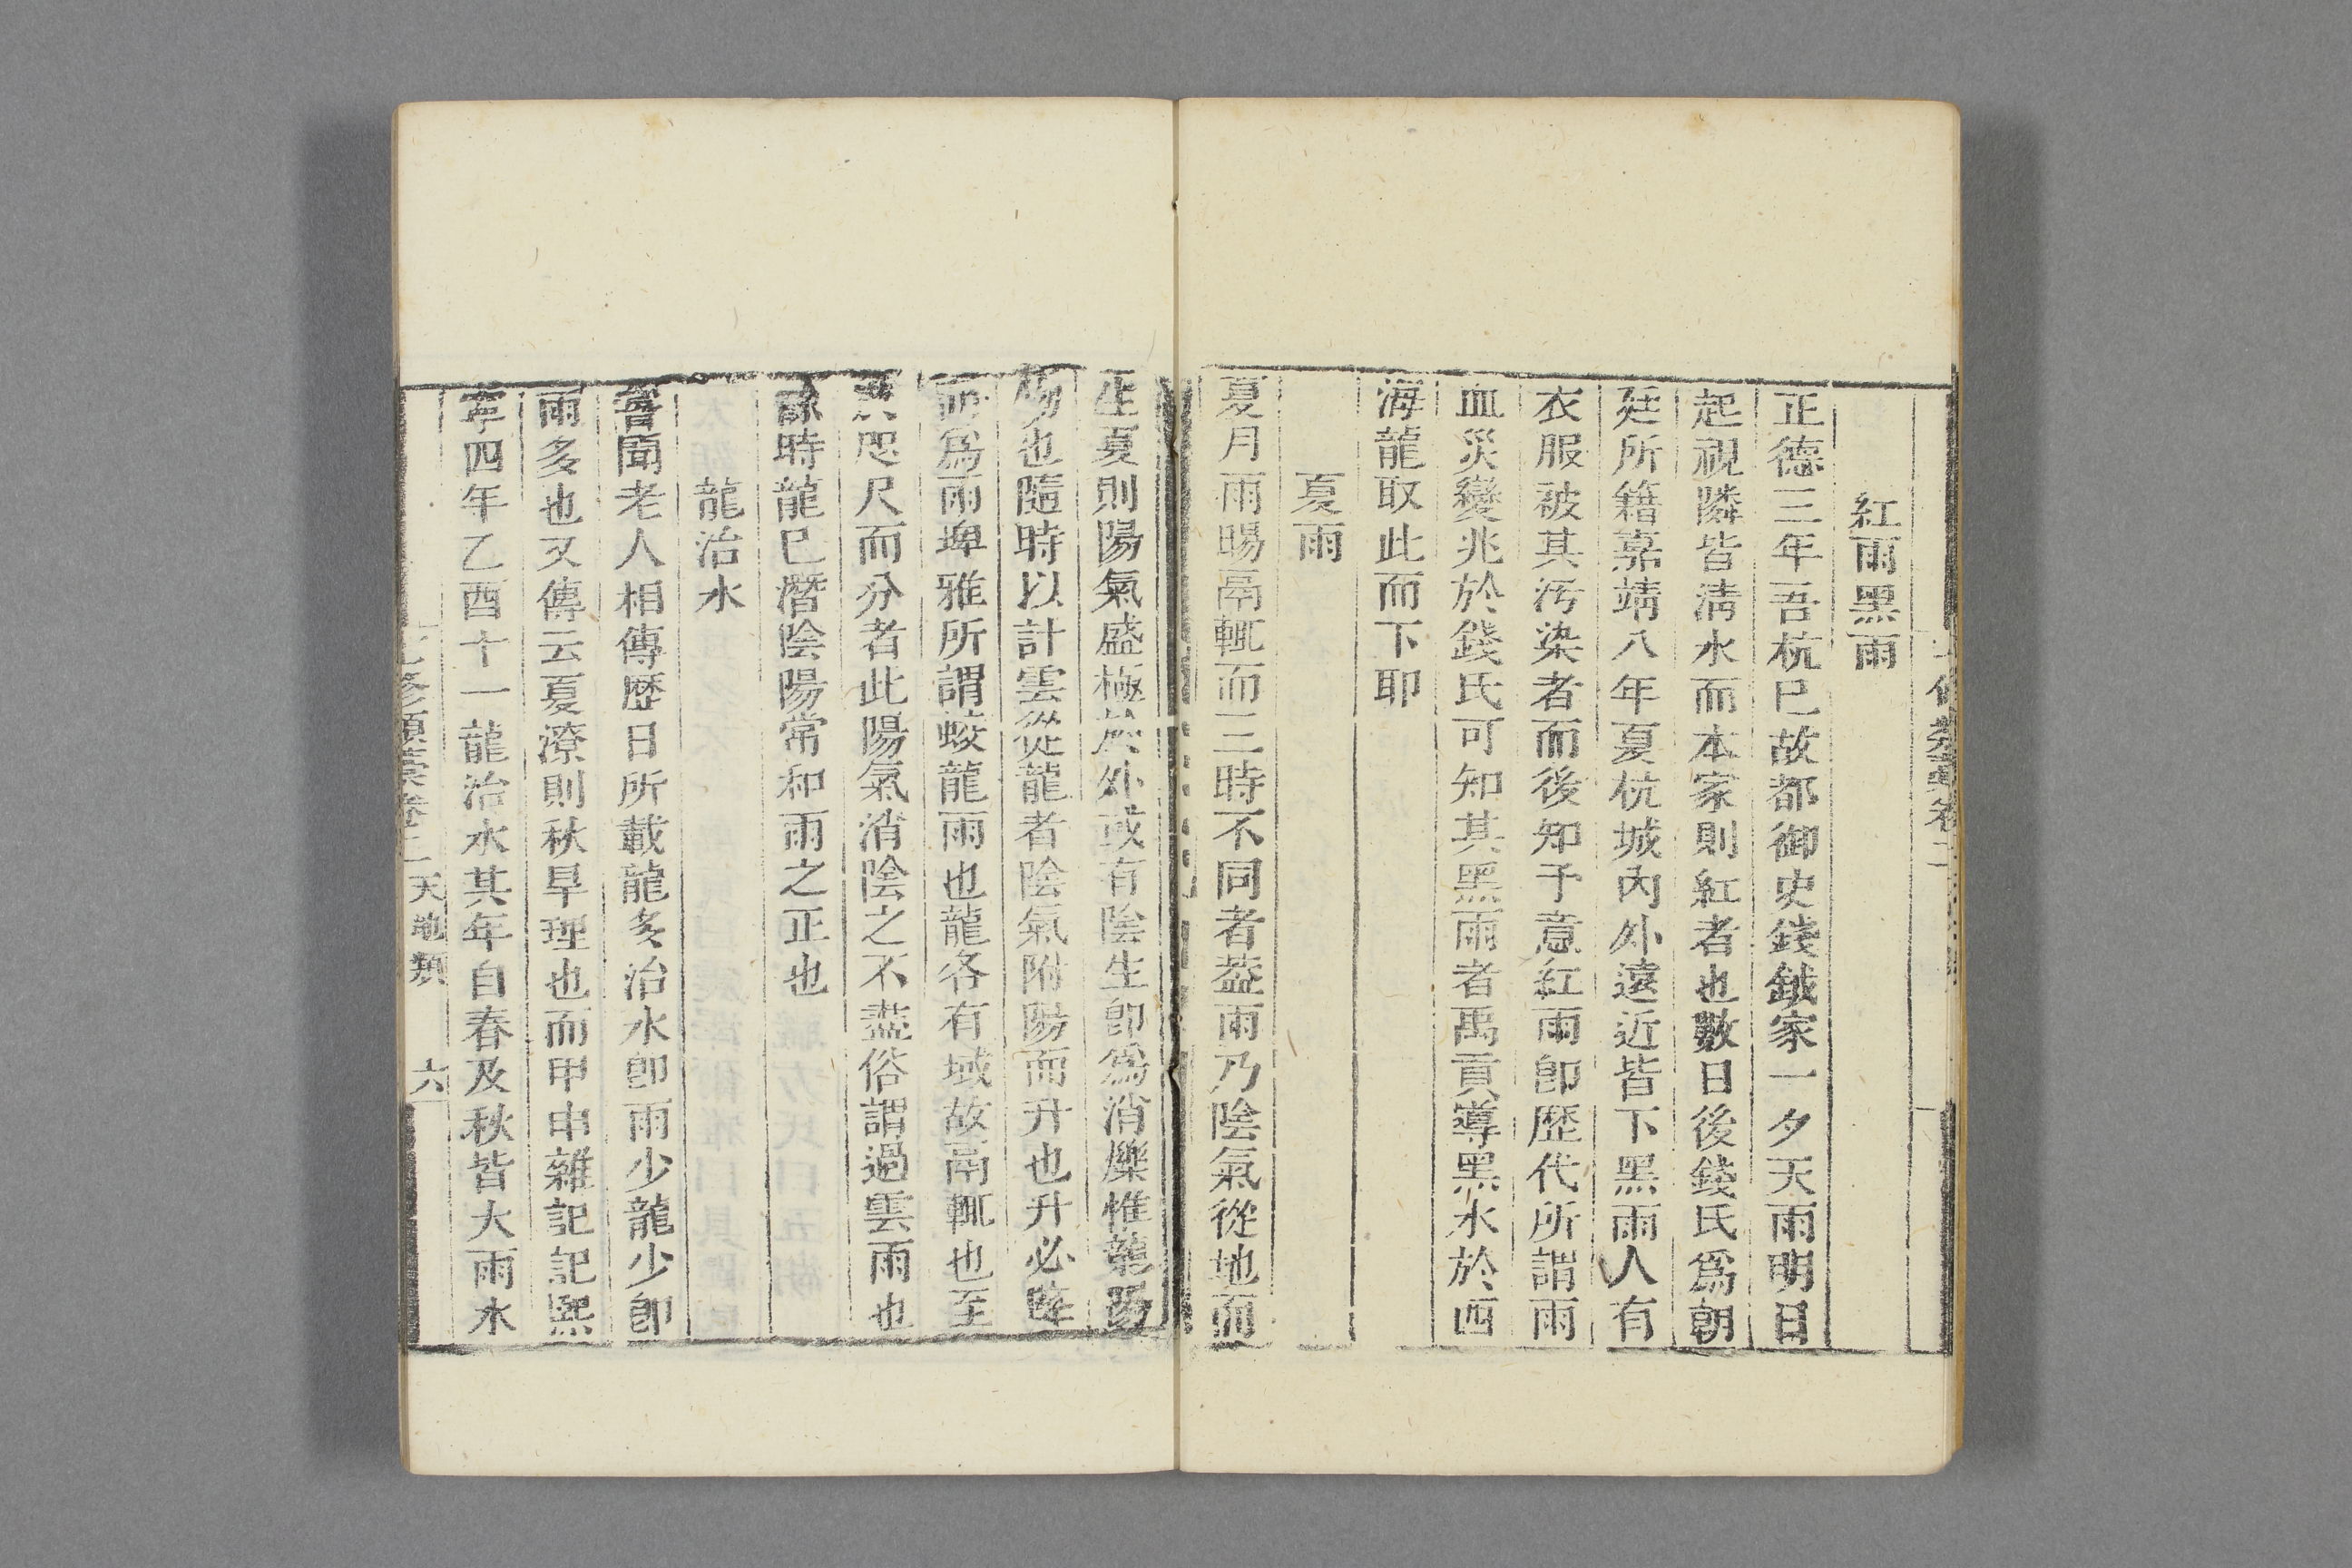 紅雨黑雨
正德三年吾杭巳故都御史錢鉞家一夕天雨明日
起視隣皆淸水而本家則紅者也數日後錢氏爲朝
廷所籍嘉靖八年夏杭城內外遠近皆下黑雨人有
衣服被其污染者而後知予意紅雨卽歷代所謂雨
血災變兆於錢氏可知其黑雨者禹貢導黑水於西
海龍取此而下耶
夏雨
夏月雨暘鬲輒而三時不同者葢雨乃陰氣從地而
生夏則陽氣盛極於外或有陰生卽爲消爍惟龍陽
物也隨時以計雲從龍者陰氣附陽而升也升必降
而爲雨埤雅所謂蛟龍雨也龍各有域故鬲輒也至
咫尺而分者此陽氣消陰之不盡俗謂過雲雨也
時龍巳潛陰陽常和雨之正也
龍治水
嘗聞老人相傳歷日所載龍多治水卽雨少龍少卽
雨多也又傳云夏潦則秋旱理也而甲申雜記記熙
寧四年乙酉十一龍治水其年自春及秋皆大雨水
七修類藁卷二 天地類 六